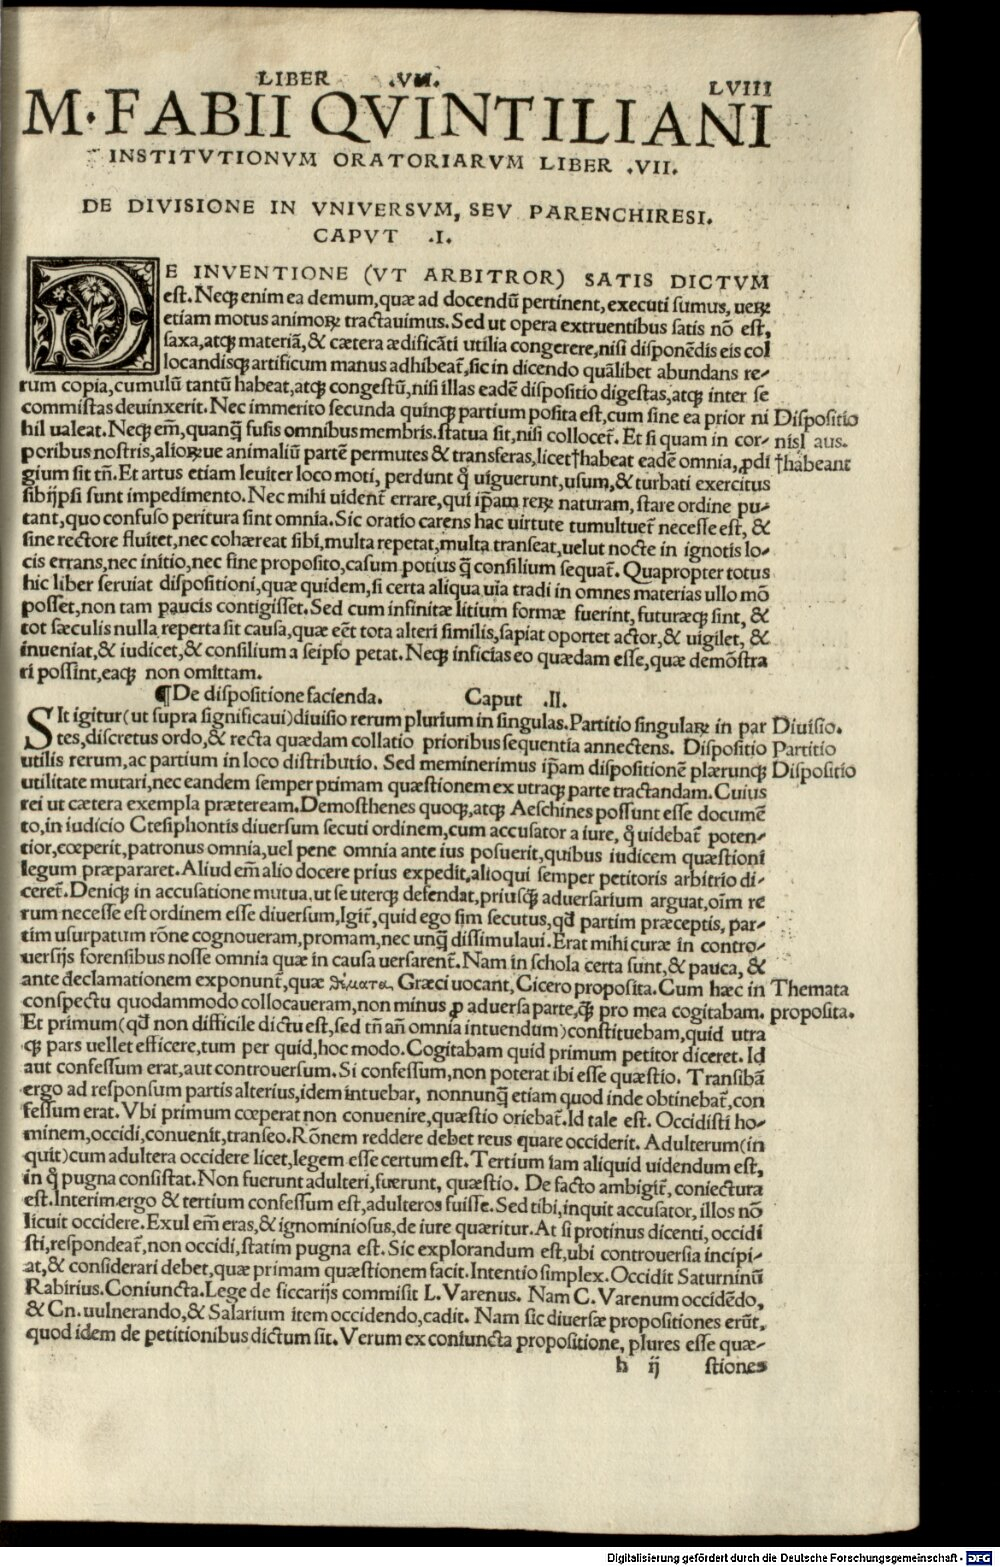 LIBER .VII. LVIII
M. FABII QVINTILIANI
INSTITVTIONVM ORATORIARVM LIBER .VII.
DE DIVISIONE IN VNIVERSVM, SEV PARENCHIRESI.
CAPVT .I.
DE INVENTIONE (VT ARBITROR) SATIS DICTVM
est. Neqꝫ enim ea demum, quæ ad docendū pertinent, executi sumus, ueꝝ
etiam motus animoꝝ tractauimus. Sed ut opera extruentibus satis nō est,
saxa, atqꝫ materiā, & cætera ædificāti utilia congerere, nisi disponēdis eis col
locandisqꝫ artificum manus adhibeat̃, sic in dicendo quālibet abundans re-
rum copia, cumulū tantū habeat, atqꝫ congestū, nisi illas eadē dispositio digestas, atqꝫ inter se
commistas deuinxerit. Nec immerito secunda quinqꝫ partium posita est, cum sine ea prior ni Dispositio
hil ualeat. Neqꝫ em̃, quanꝗ̃ fusis omnibus membris. statua sit, nisi collocet̃. Et si quam in cor- nisl aus.
poribus nostris, alioꝝue animaliū partē permutes & transferas, licet †habeat eadē omnia, ꝓdi †habeant
gium sit tñ. Et artus etiam leuiter loco moti, perdunt ꝗ̃ uiguerunt, usum, & turbati exercitus
sibijpsi sunt impedimento. Nec mihi uident̃ errare, qui ip̃am reꝝ naturam, stare ordine pu-
tant, quo confuso peritura sint omnia. Sic oratio carens hac uirtute tumultuet̃ necesse est, &
sine rectore fluitet, nec cohæreat sibi, multa repetat, multa transeat, uelut nocte in ignotis lo-
cis errans, nec initio, nec fine proposito, casum potius ꝗ̃ consilium sequat̃. Quapropter totus
hic liber seruiat dispositioni, quæ quidem, si certa aliqua uia tradi in omnes materias ullo mō
posset, non tam paucis contigisset. Sed cum infinitæ litium formæ fuerint, futuræqꝫ sint, &
tot sæculis nulla reperta sit causa, quæ eēt tota alteri similis, sapiat oportet actor, & uigilet, &
inueniat, & iudicet, & consilium a seipso petat. Neqꝫ inficias eo quædam esse, quæ demōstra
ri possint, eaqꝫ non omittam.
¶De dispositione facienda. Caput .II.
SIt igitur (ut supra significaui) diuisio rerum plurium in singulas. Partitio singulaꝝ in par Diuisio.
tes, discretus ordo, & recta quædam collatio prioribus sequentia annectens. Dispositio Partitio
utilis rerum, ac partium in loco distributio. Sed meminerimus ip̃am dispositionē plærunqꝫ Dispositio
utilitate mutari, nec eandem semper primam quæstionem ex utraqꝫ parte tractandam. Cuius
rei ut cætera exempla præteream. Demosthenes quoqꝫ, atqꝫ Aeschines possunt esse documē
to, in iudicio Ctesiphontis diuersum secuti ordinem, cum accusator a iure, ꝗ̃ uidebat̃ poten-
tior, cœperit, patronus omnia, uel pene omnia ante ius posuerit, quibus iudicem quæstioni
legum præpararet. Aliud em̃ alio docere prius expedit, alioqui semper petitoris arbitrio di-
ceret̃. Deniqꝫ in accusatione mutua, ut se uterqꝫ defendat, priusꝗ̃ aduersarium arguat, oīm re
rum necesse est ordinem esse diuersum, Igit̃, quid ego sim secutus, qđ partim præceptis, par-
tim usurpatum rōne cognoueram, promam, nec unꝗ̃ dissimulaui. Erat mihi curæ in contro-
uersijs forensibus nosse omnia quæ in causa uersarent̃. Nam in schola certa sunt, & pauca, &
ante declamationem exponunt̃, quæ θέματα Græci uocant, Cicero proposita. Cum hæc in Themata
conspectu quodammodo collocaueram, non minus ꝓ aduersa parte, ꝗ̃ pro mea cogitabam. proposita.
Et primum (qđ non difficile dictu est, sed tñ añ omnia intuendum) constituebam, quid utra
qꝫ pars uellet efficere, tum per quid, hoc modo. Cogitabam quid primum petitor diceret. Id
aut confessum erat, aut controuersum. Si confessum, non poterat ibi esse quæstio. Transibā
ergo ad responsum partis alterius, idem intuebar, nonnunꝗ̃ etiam quod inde obtinebat̃, con
fessum erat. Vbi primum cœperat non conuenire, quæstio oriebat̃. Id tale est. Occidisti ho-
minem, occidi, conuenit, transeo. Rōnem reddere debet reus quare occiderit. Adulterum (in
quit) cum adultera occidere licet, legem esse certum est. Tertium iam aliquid uidendum est,
in ꝗ̃ pugna consistat. Non fuerunt adulteri, fuerunt, quæstio. De facto ambigit̃, coniectura
est. Interim ergo & tertium confessum est, adulteros fuisse. Sed tibi, inquit accusator, illos nō
licuit occidere. Exul em̃ eras, & ignominiosus, de iure quæritur. At si protinus dicenti, occidi
sti, respondeat̃, non occidi, statim pugna est. Sic explorandum est, ubi controuersia incipi-
at, & considerari debet, quæ primam quæstionem facit. Intentio simplex. Occidit Saturninū
Rabirius. Coniuncta. Lege de siccarijs commisit L. Varenus. Nam C. Varenum occidēdo,
& Cn. uulnerando, & Salarium item occidendo, cadit. Nam sic diuersæ propositiones erūt,
quod idem de petitionibus dictum sit. Verum ex coniuncta propositione, plures esse quæ-
h ij stiones
Digitalisierung gefördert durch die Deutsche Forschungsgemeinschaft - DFG